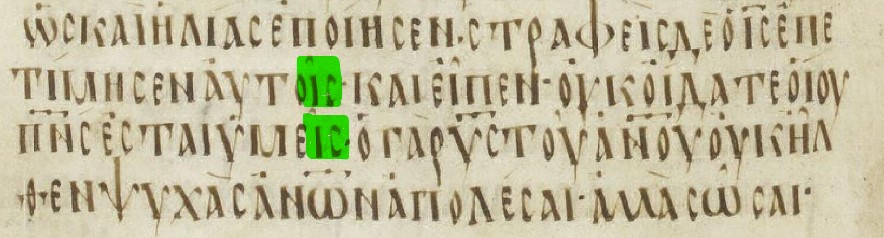 ὡσκαιηλιασἐποιησεν·στραφεισδεὁῙ̈Σἐπε
τιμησεναὐτοῖς·καιεἶπεν·οὐκοἴδατεὁιου
Π̅Ν̅Σἐσταιὑμεῖς·ὁγαρΥ̅Σ̅τοῦἀ̅ν̅ο̅υ̅οὐκηλ
θενψυχὰσἀ̅ν̅ω̅ν̅ἀπολεσαι·ἀλλασῶσαι·